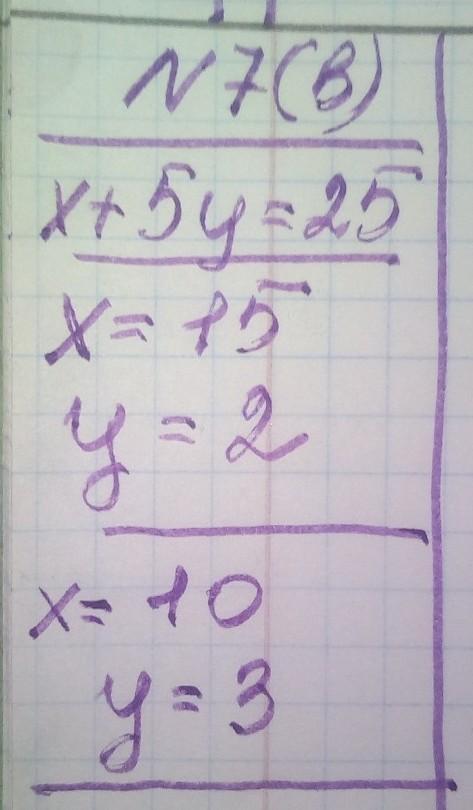 N7(В)
x+5y=25
x=15
y=2
x=10
y=3